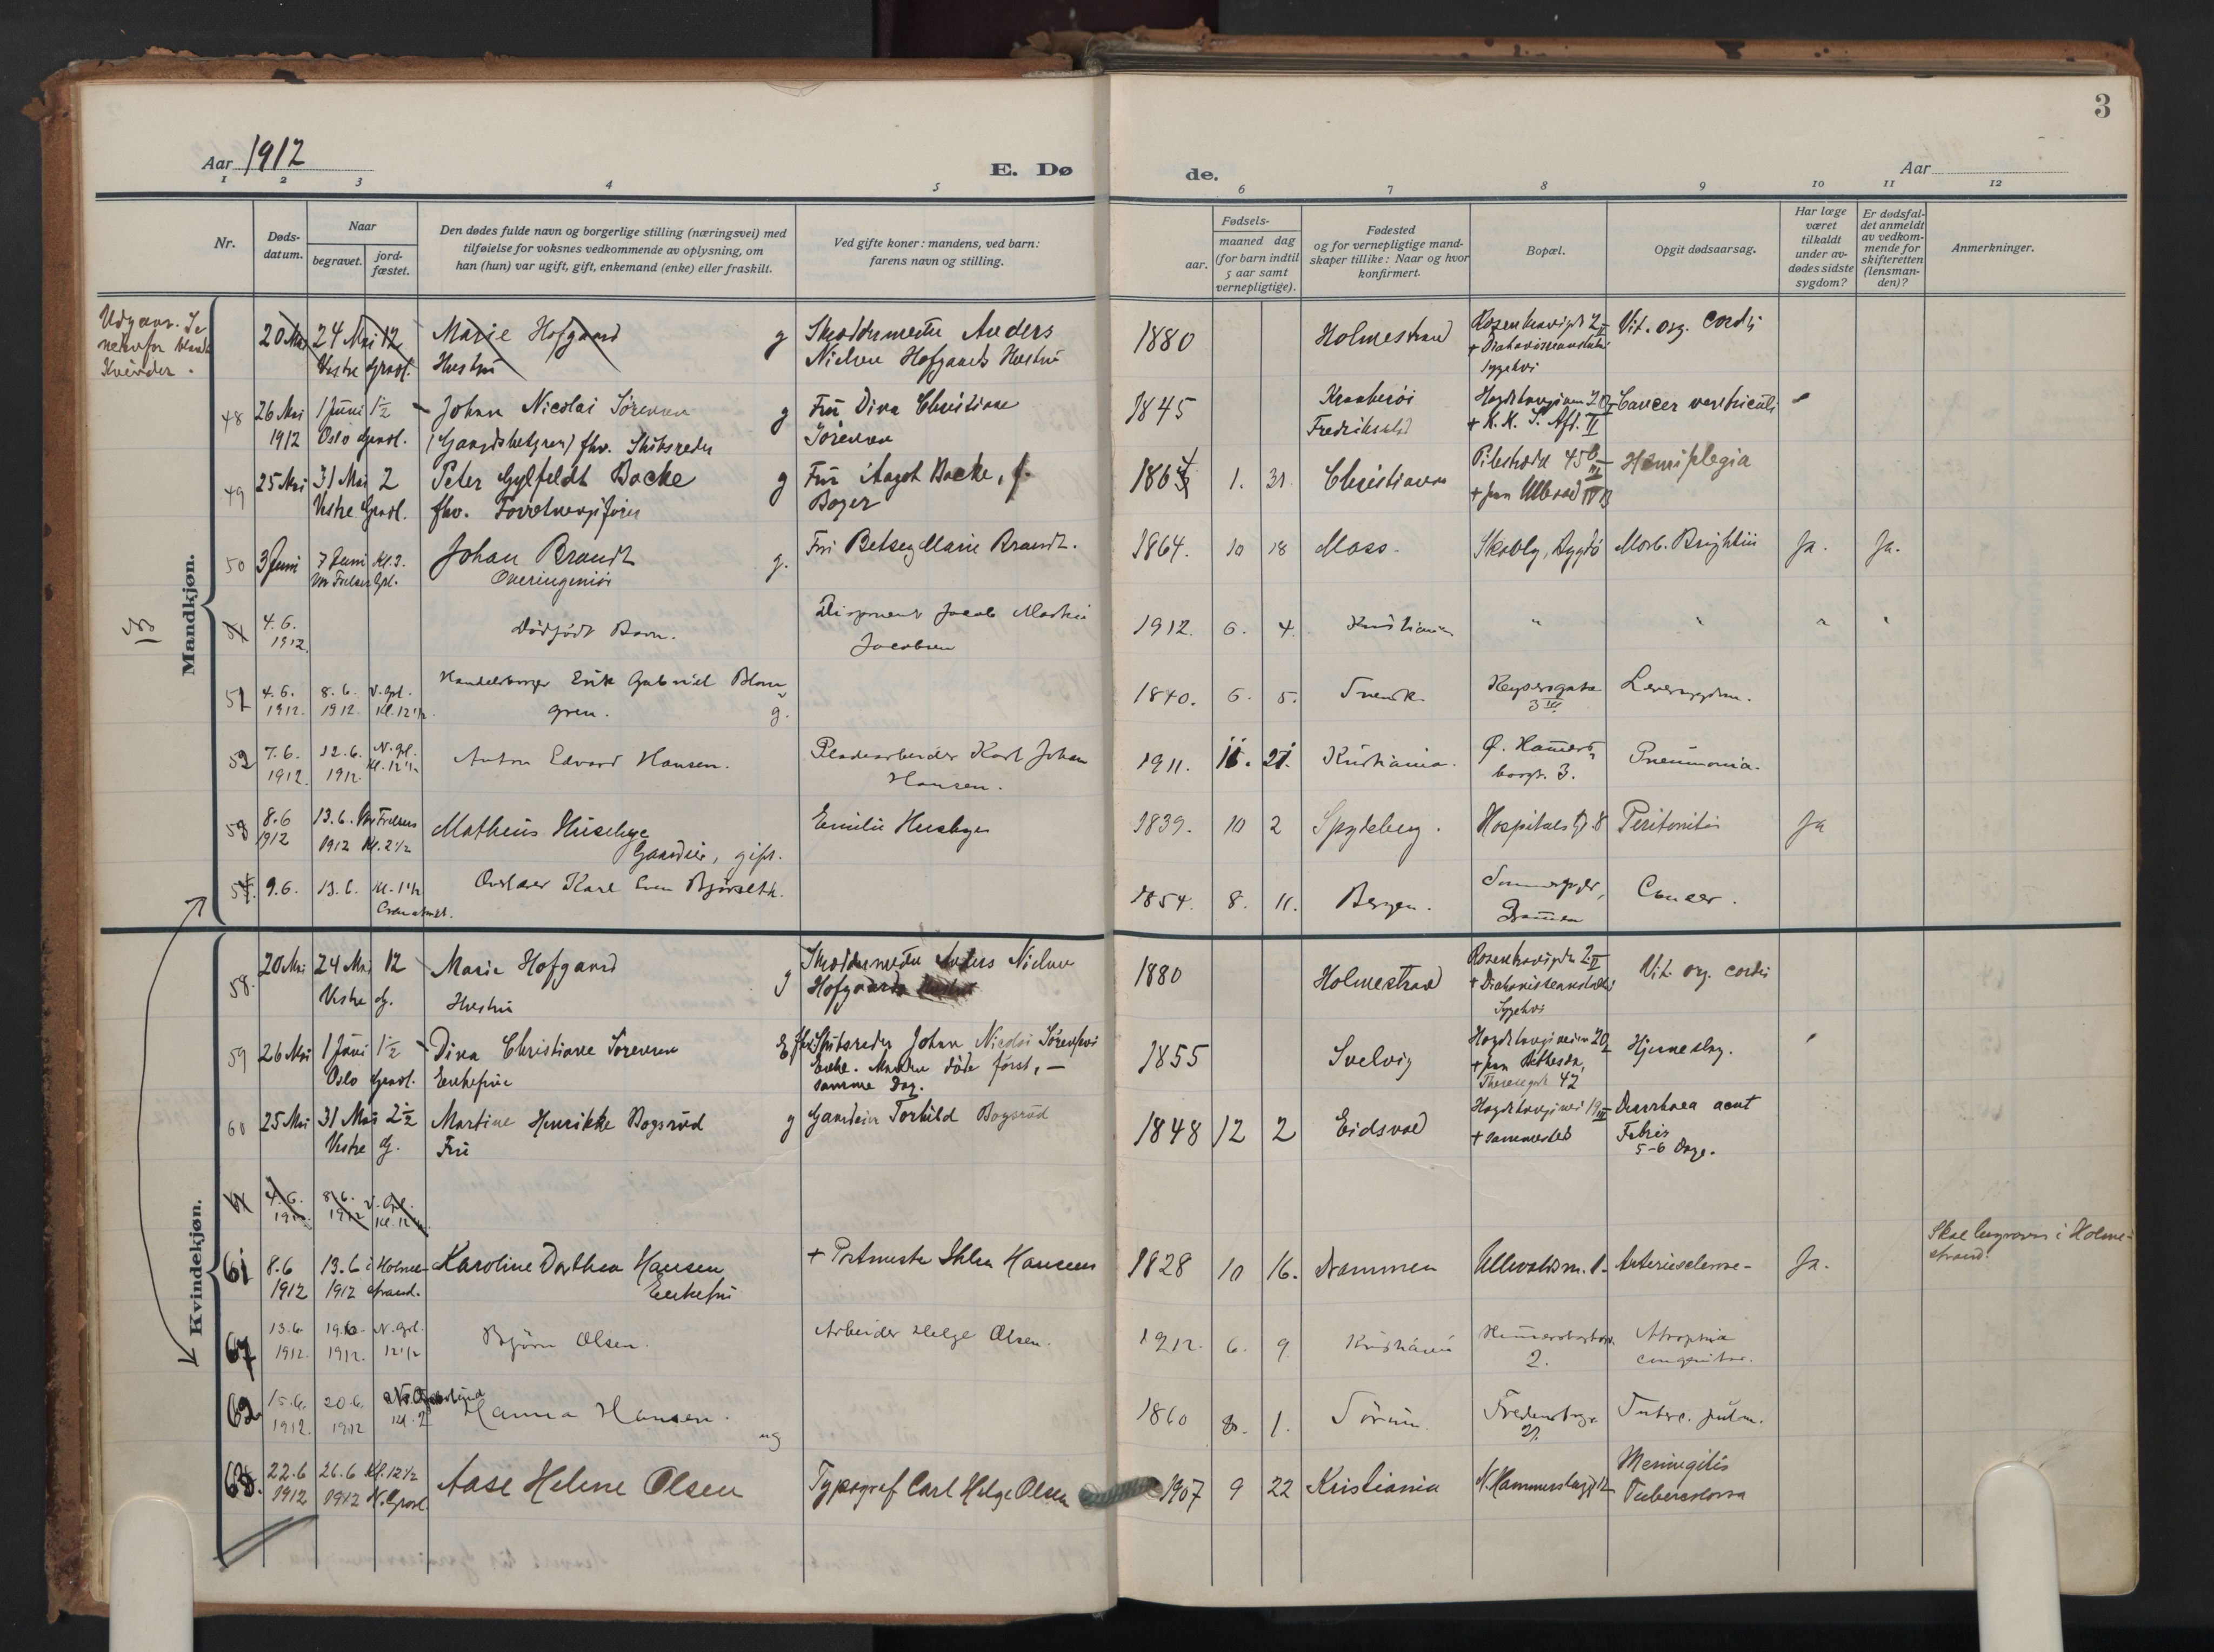 3
Aar 1912
E. Dø
de.
Aar
1 2 3 4 5 6 7 8 9 10 11 12
Nr.
Døds-
datum.
Naar
begravet.
jord-
fæstet.
Den dødes fulde navn og borgerlige stilling (næringsvei) med
tilføielse for voksnes vedkommende av oplysning, om
han (hun) var ugift, gift, enkemand (enke) eller fraskilt.
Ved gifte koner: mandens, ved barn:
farens navn og stilling.
Fødsels-
aar.
maaned dag
(for barn indtil
5 aar samt
vernepligtige).
Fødested
og for vernepligtige mand-
skaper tillike: Naar og hvor
konfirmert.
Bopæl.
Opgit dødsaarsag.
Har læge
været
tilkaldt
under av-
dødes sidste
sygdom?
Er dødsfal-
det anmeldt
av vedkom-
mende for
skifteretten
(lensman-
den)?
Anmerkninger.
Mandkjøn.
Udgaar. Se
nedenfor blandt
Kvinder.
20 Mai 24 Mai 12 Marie Hofgaard g Skræddermester Anders 1880 Holmestrand 2 II Vit. org. cordis
Vestre Gravl. Hustru Nielsen Hofgaards Hustru + Diakonisseanstaltens
Sygehus
48 26 Mai 1 Juni 1½ Johan Nicolai Sørensen g Fru Dina Christiane 1845 Kraakerøi 20 Cancer ventriculi
1912 Oslo Gravl. (Gaardsbestyrer) fhv. Skibsreder Sørensen Fredrikstad + K. K. S. Afd. II
49 25 Mai 31 Mai 2 Peter Gylfeldt Backe g Fru Aagot Backe, f. 1864 1. 31 Christiania Pilestrædet 45 Hemiplegia
Vestre Gravl. fhv. Forretningsfører Boger + paa Ullevaal
50 3 Juni 7 Juni Kl. 2. Johan Brandt g. Fru Betsey Marie Brandt. 1864. 10 18 Moss. Skovly, Bygdø Morb. Brightii Ja. Ja.
Vor Frelsers Grl. Overingeniør
4.6. Dødfødt Barn. Disponent Jacob Martin 1912. 6. 4. Kristiania " " " "
1912. Jacobsen
51 4.6. 8.6. V. Grl. Handelsborger Erik Gabriel Blom- 1840. 6. 5. Svensk Keysersgate Leversygdom.
1912. 1912. Kl. 12½. gren. g. 3 III
52 7.6. 12.6. N. Grl. Anton Edvard Hansen. Pladearbeider Karl Johan 1911. 11. 21. Kristiania. Ø. Hammers- Pneumonia.
1912. 1912. Kl. 12½ Hansen. borgt. 3.
53 8.6 13.6. Vor Frelsers Matheus Husebye Emilie Husebye 1839. 10 2 Spydeberg. Hospitalsgt. 8 Peritonitis Ja
1912 1912 Kl. 2½ Gaardeier, gift.
54. 9.6. 13.6. Kl. 1½ Karl Even Bjørseth. 1854. 8. 11. Bergen. Cancer.
Drammen
Kvindekjøn.
58. 20 Mai 24 Mai 12 Marie Hofgaard g Skræddermester Anders Nielsen 1880 Holmestrand 2 II Vit. org. cordis
Vestre g. Hustru Hofgaards + Diakonisseanstaltens
Sygehus
59 26 Mai 1 Juni 1½ Dina Christiane Sørensen E fhv. Skibsreder Johan Nicolai Sørensens 1855 Svelvig 20 Hjerneslag.
Oslo Gravl. Enkefrue Enke. Manden døde først, – + paa Bethesda,
samme Dag. Theresegt. 42
60 25 Mai 31 Mai 2½ Martine Henrikke Bogsrud g Gaardeier Torkild Bogsrud 1848 12 2 Eidsvold 19 III Diarrhoea acut
Vestre g. Fru + sammesteds Febris
5-6 Dage.
4.6. 8.6. V. Grl.
1912. 1912 Kl. 12½.
61 8.6 13.6 i Holme- Karoline Dorthea Hansen + Postmester Hansen 1828 10 16. Drammen Ullevoldsv. 1. Arteriosclerose- Ja. Skal begraves i Holme-
1912 1912 strand. Enkefru strand.
67 13.6 19.6 N. Grl. Bjørn Olsen. Arbeider Helge Olsen. 1912. 6. 9. Kristiania Atrophia
1912. 1912. 12½ 2. congenita.
62 15.6. 20.6. Hanna Hansen. 1860 8. 1. Sørum Fredensborgv. Tuberc. pulm.
1912. 1912 Kl. 2 ug
63. 22.6 26.6 Kl. 12½ Aase Helene Olsen Typograf Carl Helge Olsen 1907 9 22 Kristiania N. Hammersborggt 12 Meningitis
1912 1912 N. Gravl. Tuberculosa